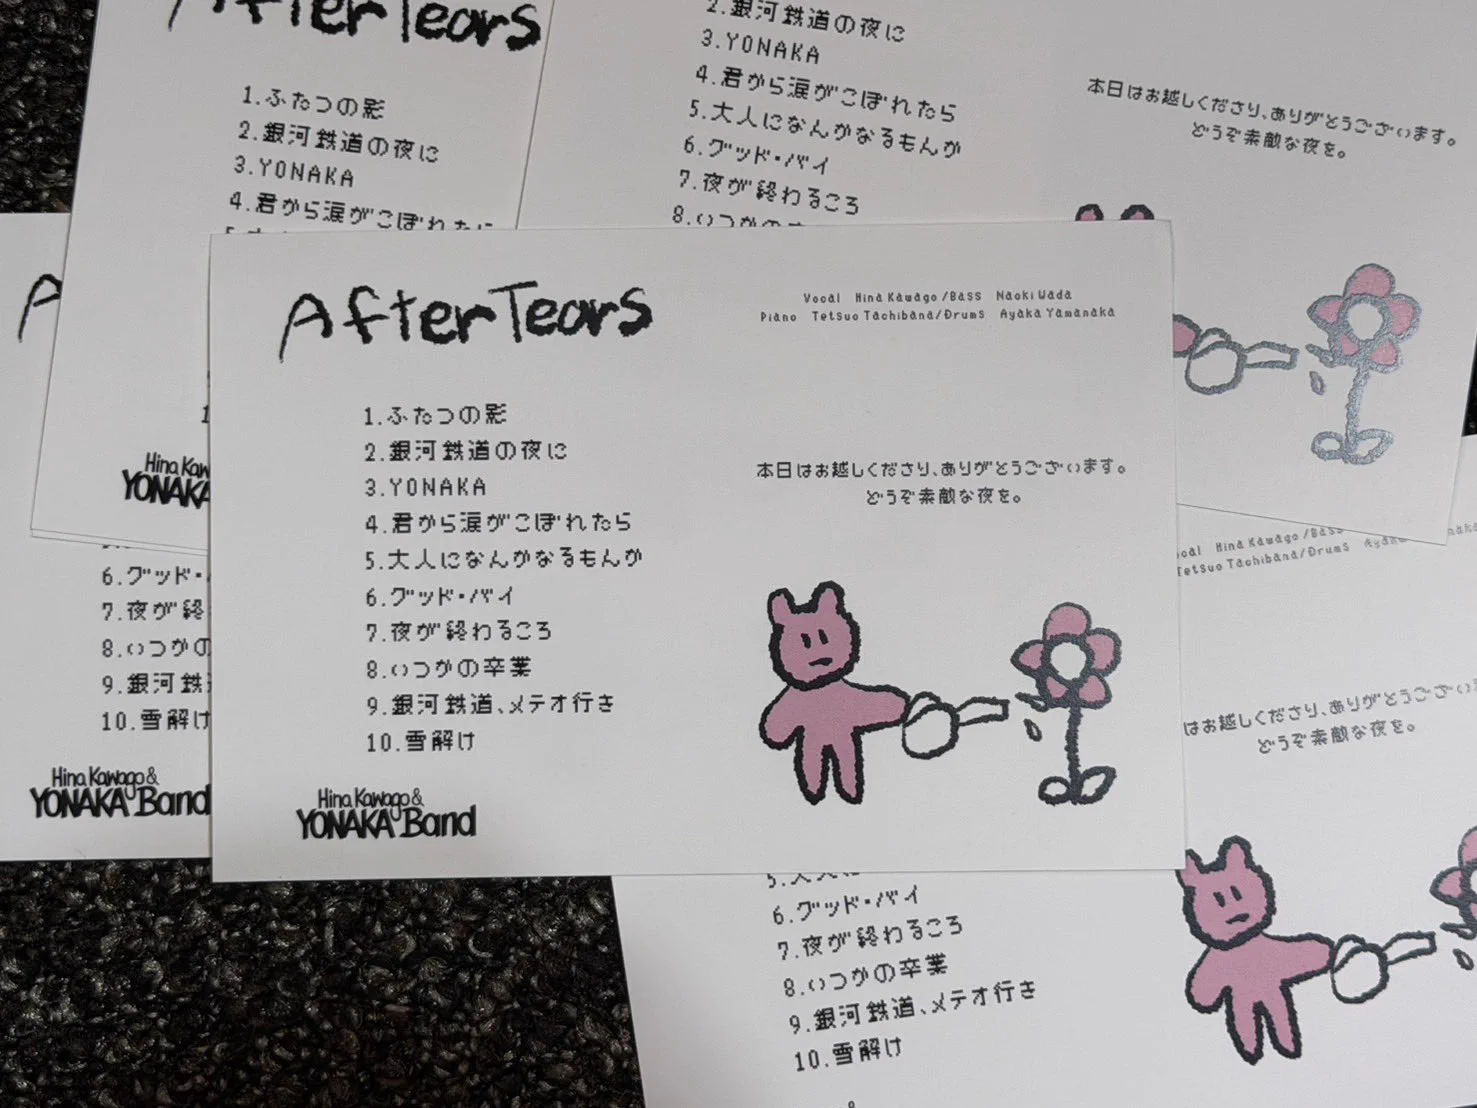 After Tears
1.ふたつの影
2.銀河鉄道の夜に
3.YONAKA
4.君から涙がこぼれたに
2.銀河鉄道の夜に
3.YONAKA
4.君から涙がこぼれたら
5.大人になんかなるもんか
6.グッド・バイ
7.夜が終わるころ
8.いつかの
本日はお越しくださり、ありがとうございます。
どうぞ素敵な夜を。
Hina Kaw
YONAKA
After Tears
Vocal Hina Kawago/Bass Naoki Wada
Piano Tetsuo Tachibana/Drums Ayaka Yamanaka
1.ふたつの影
2.銀河鉄道の夜に
3.YONAKA
4.君から涙がこぼれたら
5.大人になんかなるもんか
6.グッド・バイ
7.夜が終わるころ
8.いつかの卒業
9.銀河鉄道、メテオ行き
10.雪解け
本日はお越しくださり、ありがとうございます。
どうぞ素敵な夜を。
Hina Kawago&
YONAKA Band
6.グッド・
7.夜が終
8.いつかの
9.銀河鉄
10.雪解け
Hina Kawago&
YONAKA Band
ocal Hina Kawago/Bass
Tetsuo Tachibana/Drums Ayaka
はお越しくださり、ありがとうございま
どうぞ素敵な夜を。
6.グッド・バイ
7.夜が終わるころ
8.いつかの卒業
9.銀河鉄道、メテオ行き
10.雪解け